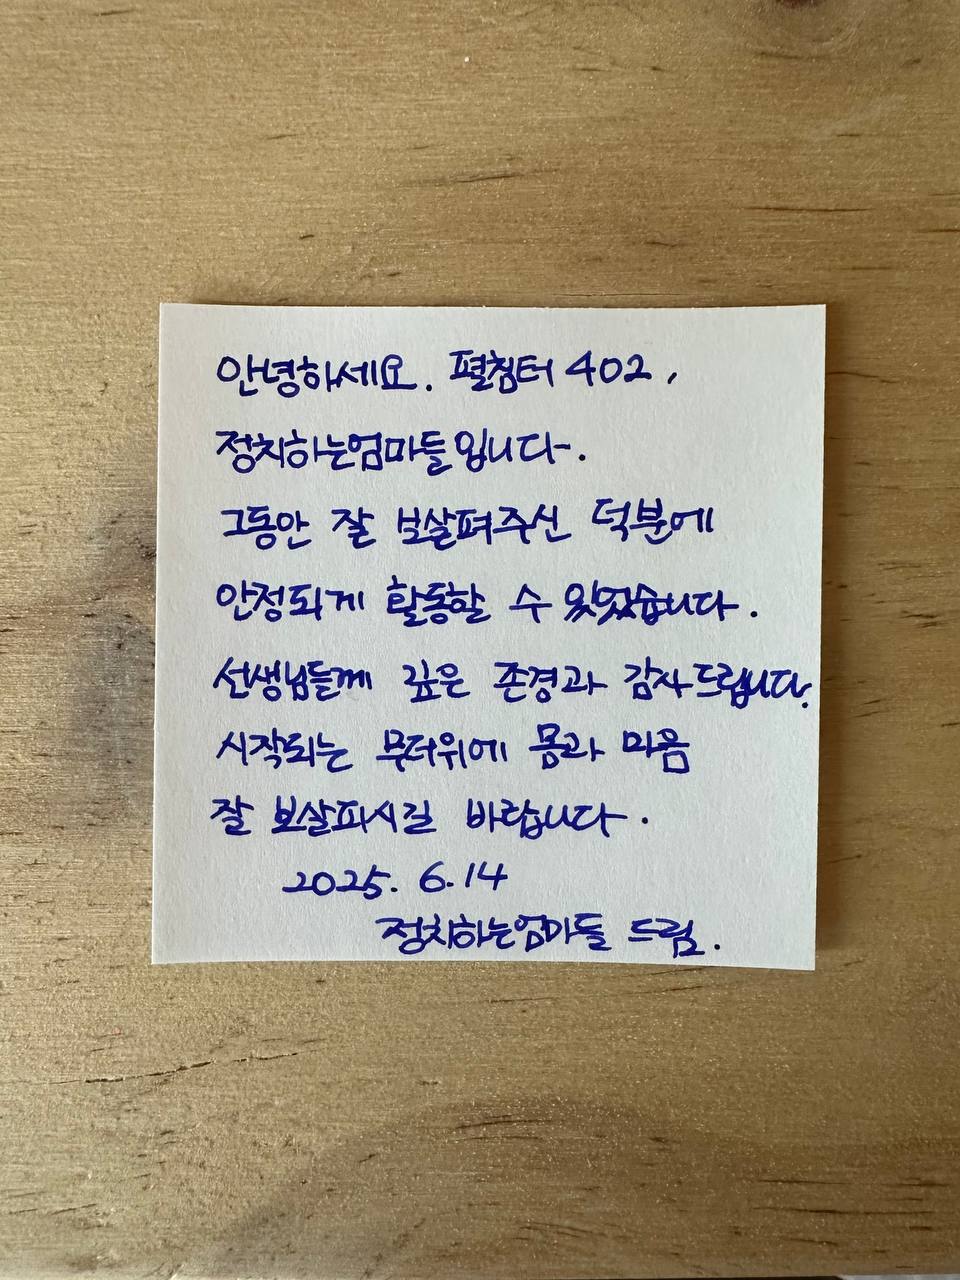 안녕하세요. 펼침터 402,
정치하는엄마들입니다.
그동안 잘 보살펴주신 덕분에
안정되게 활동할 수 있었습니다.
선생님들께 깊은 존경과 감사드립니다.
시작되는 무더위에 몸과 마음
잘 보살피시길 바랍니다.
2025. 6.14
정치하는엄마들 드림.